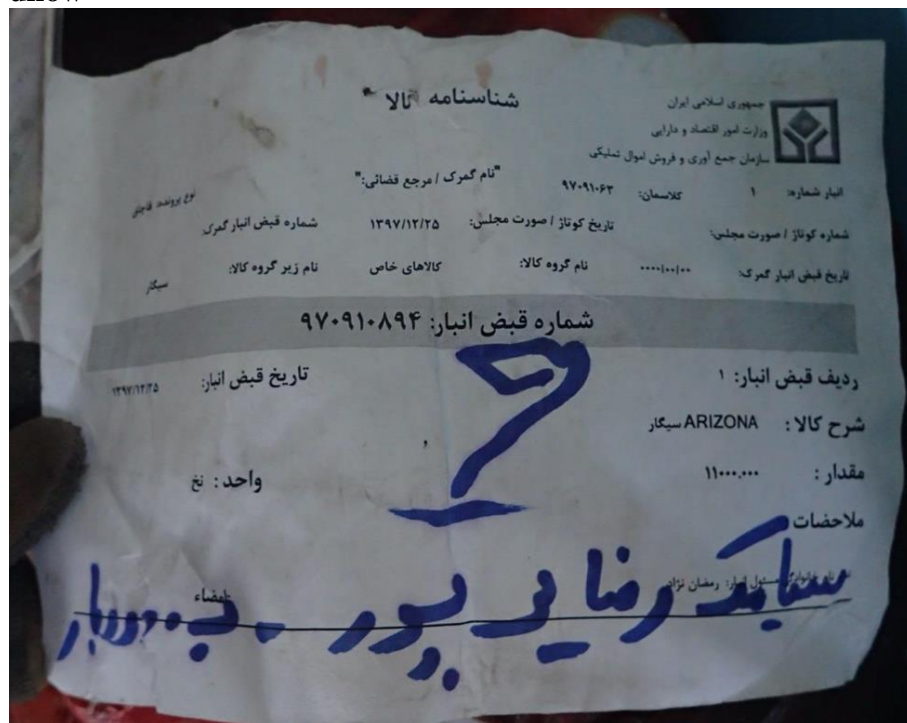 شناسنامه کالا
جمهوری اسلامی ایران
وزارت امور اقتصاد و دارایی
سازمان جمع آوری و فروش اموال تملیکی
انبار شماره: ۱ کلاسمان: ۹۷۰۹۱۰۶۳ "نام گمرک / مرجع قضائی:" نوع پرونده: قاچاق
شماره کوتاژ / صورت مجلس: تاریخ کوتاژ / صورت مجلس: ۱۳۹۷/۱۲/۲۵ شماره قبض انبار گمرک:
تاریخ قبض انبار گمرک: ۰۰۰۰/۰۰/۰۰ نام گروه کالا: کالاهای خاص نام زیر گروه کالا: سیگار
شماره قبض انبار: ۹۷۰۹۱۰۸۹۴
ردیف قبض انبار: ۱ تاریخ قبض انبار: ۱۳۹۷/۱۲/۲۵
شرح کالا : ARIZONA سیگار
مقدار : ۱۱۰۰۰.۰۰۰ واحد : نخ
ملاحضات
نام خانوادگی مسئول انبار: رمضان نژاد امضاء
سیامک رضایی پور